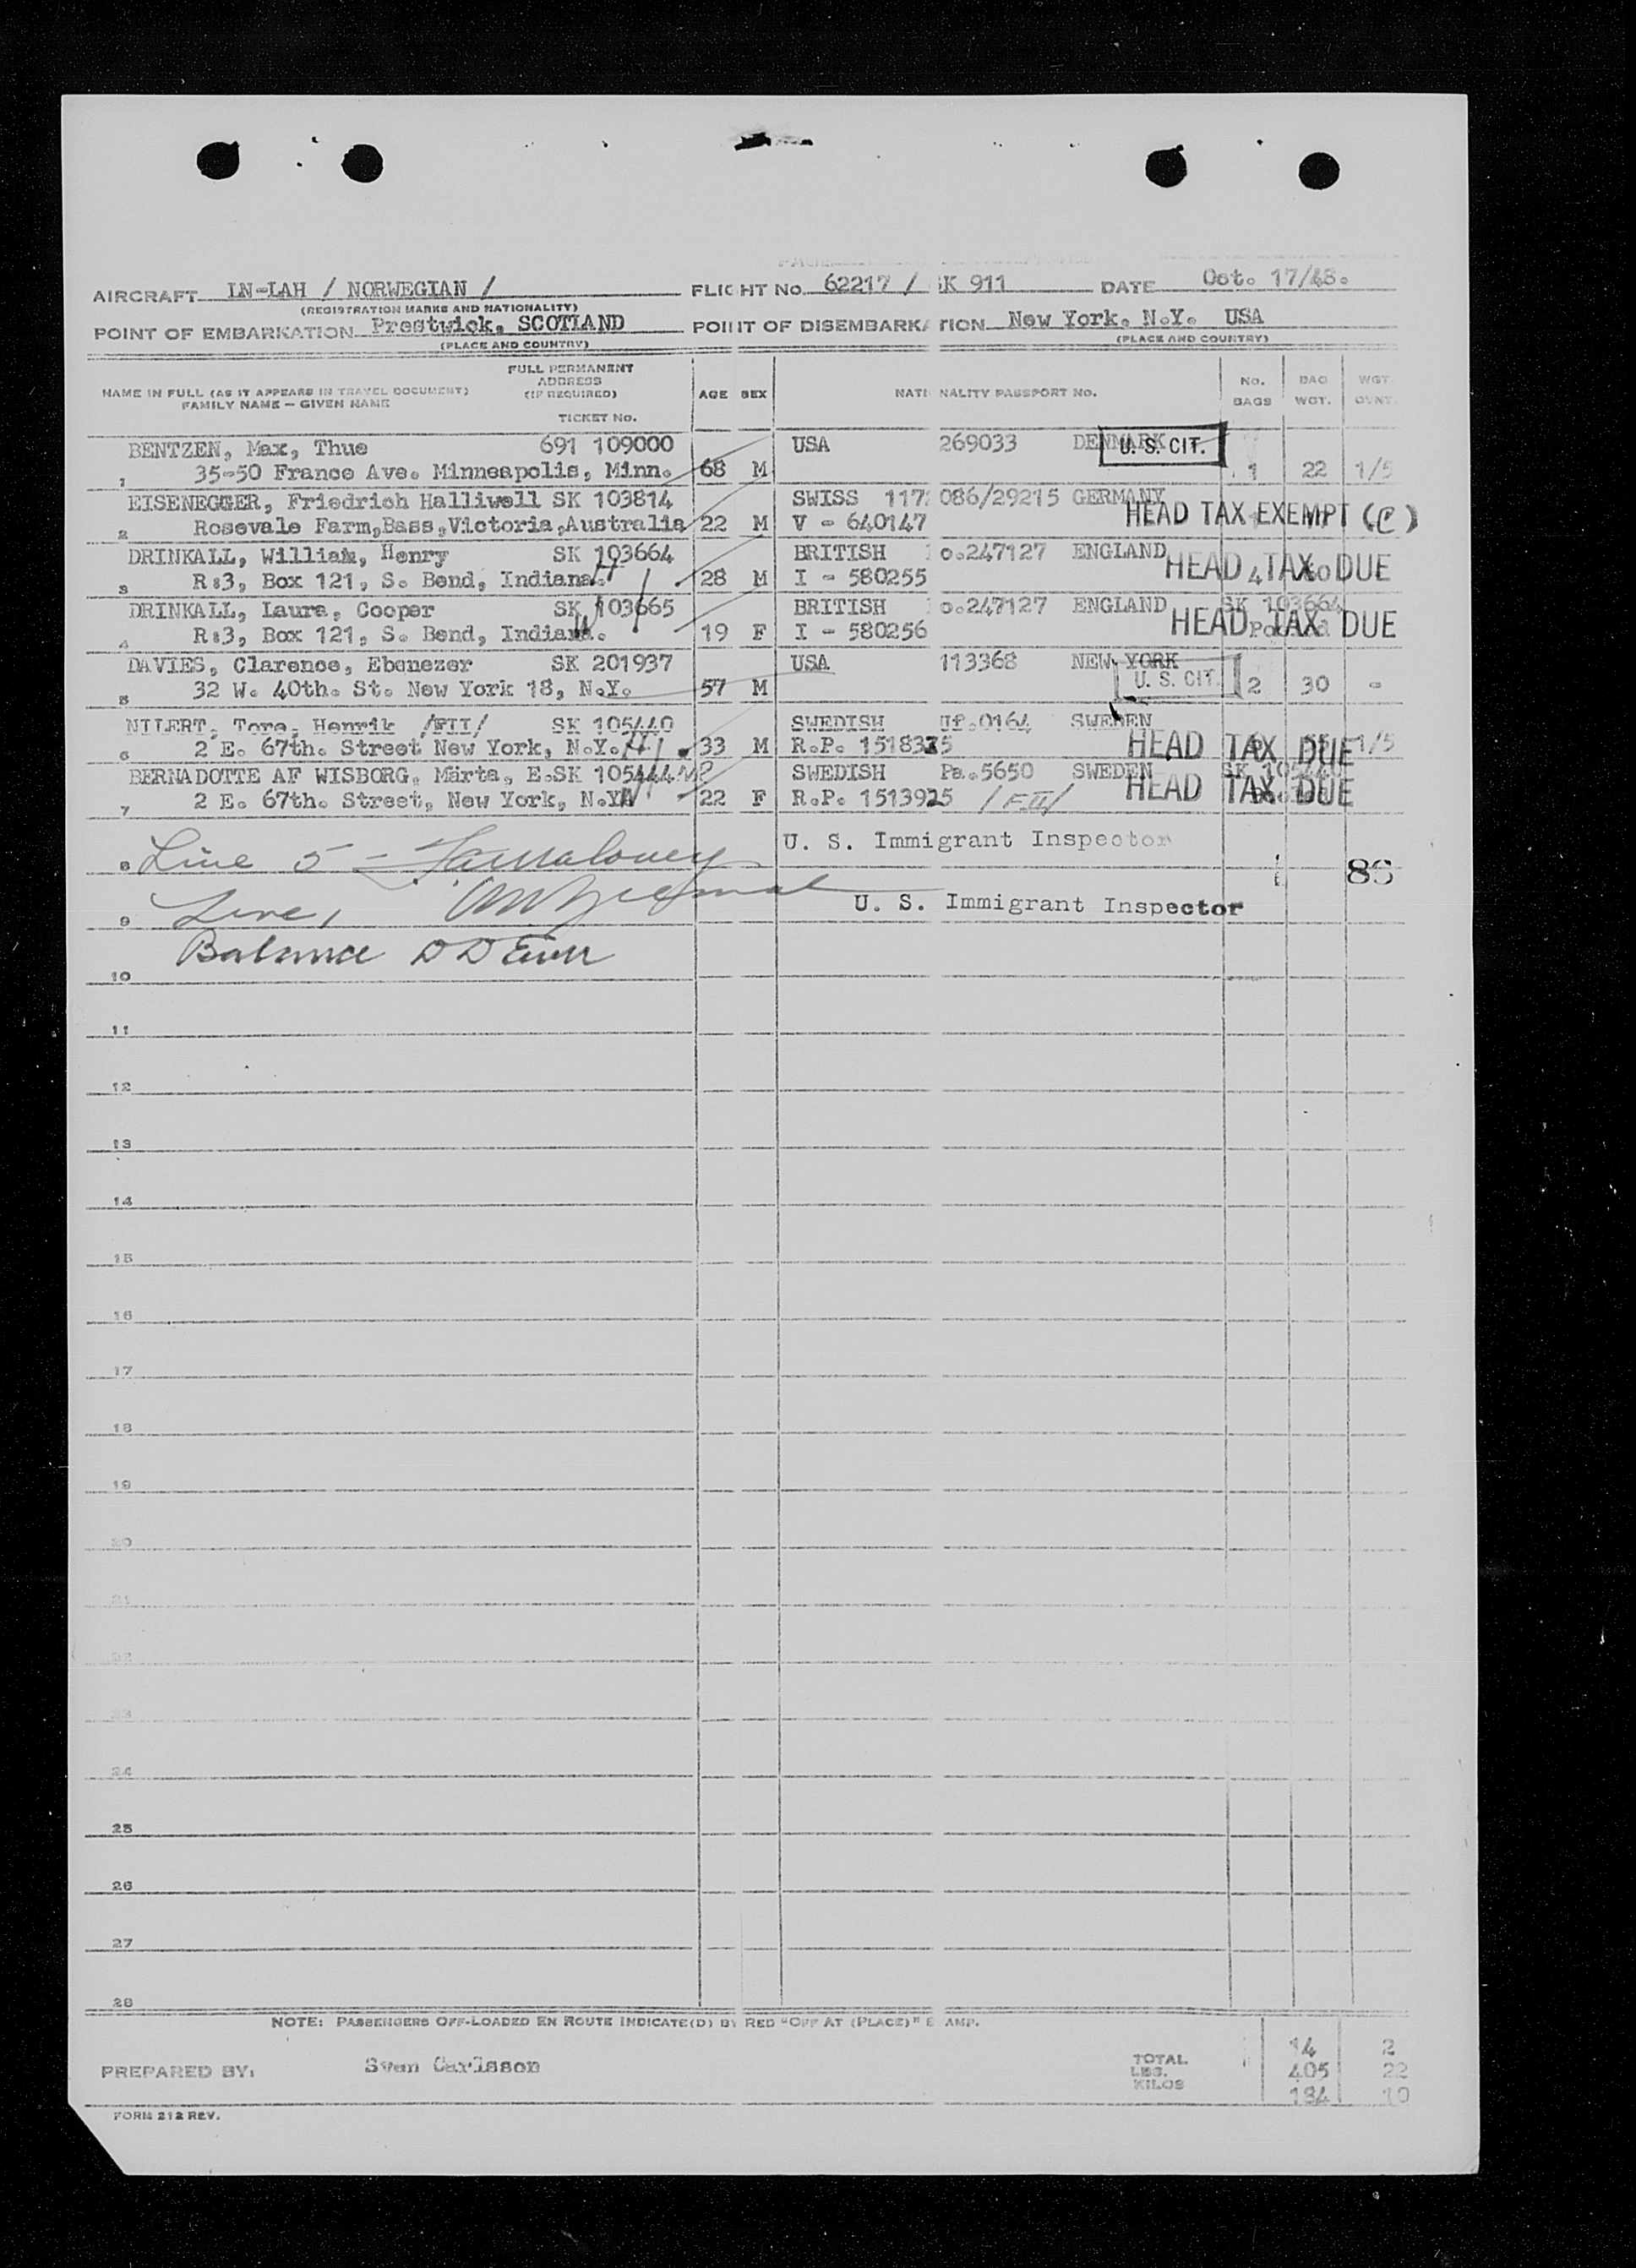 AIRCRAFT LN-LAH / NORWEGIAN / FLIGHT No. 62217 / SK 911 DATE Oct. 17/48.
(REGISTRATION MARKS AND NATIONALITY)
POINT OF EMBARKATION Prestwick, SCOTLAND POINT OF DISEMBARKATION New York, N.Y. USA
(PLACE AND COUNTRY) (PLACE AND COUNTRY)
NAME IN FULL (AS IT APPEARS IN TRAVEL DOCUMENT)
FAMILY NAME — GIVEN NAME
FULL PERMANENT
ADDRESS
(IF REQUIRED)
TICKET No.
AGE SEX NATIONALITY PASSPORT No. No. BAGS BAG WGT. WGT. OVNT.
BENTZEN, Max, Thue 691 109000 USA 269033 DENMARK U. S. CIT.
1 35-50 France Ave. Minneapolis, Minn. 68 M 1 22 1/5
EISENEGGER, Friedrich Halliwell SK 103814 SWISS 117 086/29215 GERMANY
2 Rosevale Farm,Bass,Victoria,Australia 22 M V - 640147 HEAD TAX EXEMPT (C)
DRINKALL, William, Henry SK 103664 BRITISH o.247127 ENGLAND
3 R:3, Box 121, S. Bend, Indiana. 28 M I - 580255 HEAD TAX DUE
DRINKALL, Laura, Cooper SK 103665 BRITISH o.247127 ENGLAND SK 103664
4 R:3, Box 121, S. Bend, Indiana. 19 F I - 580256 HEAD TAX DUE
DAVIES, Clarence, Ebenezer SK 201937 USA 113368 NEW YORK
5 32 W. 40th. St. New York 18, N.Y. 57 M U. S. CIT. 2 30 -
NILERT, Tore, Henrik /FII/ SK 105440 SWEDISH Uf.0164 SWEDEN
6 2 E. 67th. Street New York, N.Y. 33 M R.P. 1518375 HEAD TAX DUE 1/5
BERNADOTTE AF WISBORG, Märta, E.SK 105444 SWEDISH Pa.5650 SWEDEN
7 2 E. 67th. Street, New York, N.Y. 22 F R.P. 1513925 /F.II/ HEAD TAX DUE
U. S. Immigrant Inspector
8 Line 5 -
86
9 Line 1 U. S. Immigrant Inspector
Balance
10
11
12
13
14
15
16
17
18
19
20
21
22
23
24
25
26
27
28
NOTE: PASSENGERS OFF-LOADED EN ROUTE INDICATE(D) BY RED "OFF AT (PLACE)" AMP.
PREPARED BY: Sven Carlsson
TOTAL 14 2
LBS. 405 22
KILOS 184 10
FORM 212 REV.